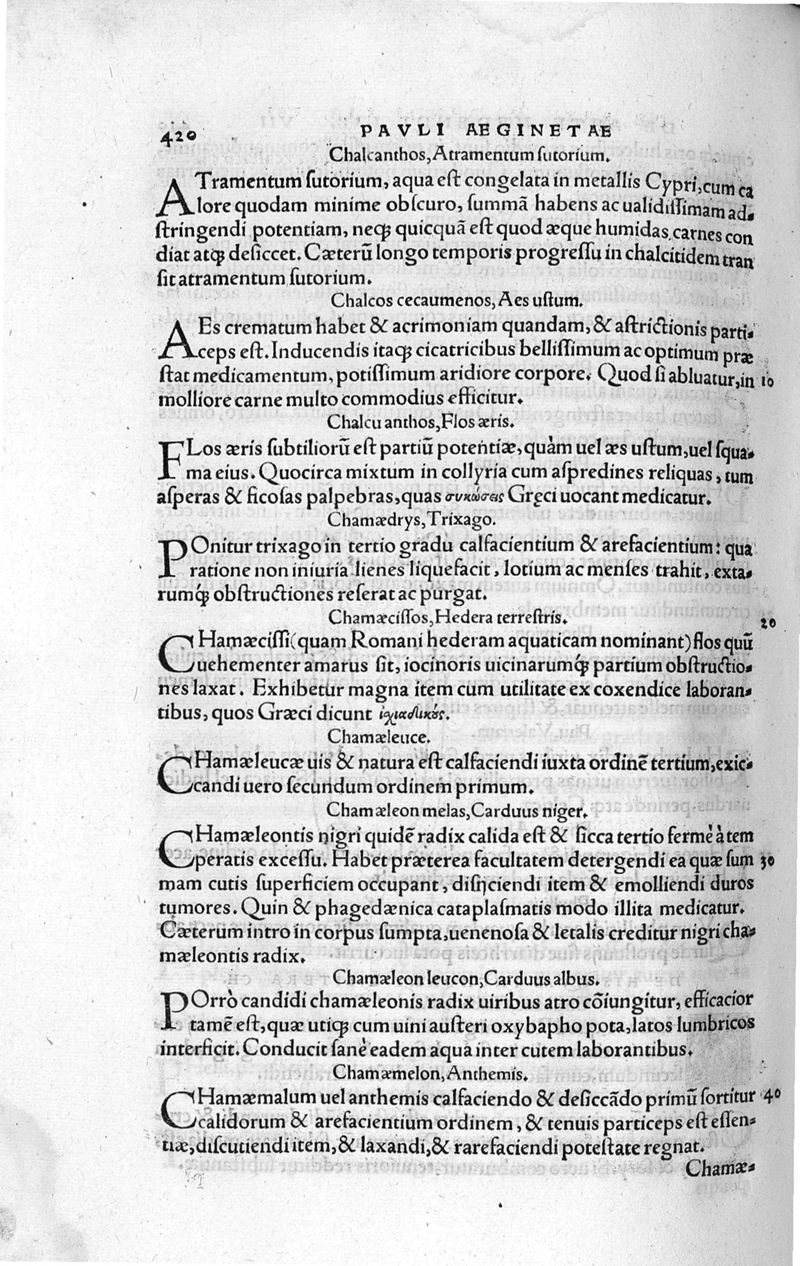 420 PAVLI AEGINETAE
Chalcanthos, Atramentum ſutorium.
ATramentum ſutorium, aqua eſt congelata in metallis Cypri, cum ca
lore quodam minime obſcuro, ſummã habens ac ualidiſſimam ad-
ſtringendi potentiam, neqꝫ quicquã eſt quod æque humidas carnes con
diat atqꝫ deſiccet. Cæterũ longo temporis progreſſu in chalcitidem tran
ſit atramentum ſutorium.
Chalcos cecaumenos, Aes uſtum.
AEs crematum habet & acrimoniam quandam, & aſtrictionis parti-
ceps eſt. Inducendis itaqꝫ cicatricibus belliſſimum ac optimum præ
ſtat medicamentum, potiſſimum aridiore corpore. Quod ſi abluatur, in 10
molliore carne multo commodius efficitur.
Chalcu anthos, Flos æris.
FLos æris ſubtiliorũ eſt partiũ potentiæ, quàm uel æs uſtum, uel ſqua-
ma eius. Quocirca mixtum in collyria cum aſpredines reliquas, tum
aſperas & ficoſas palpebras, quas συκώσεις Gręci uocant medicatur.
Chamædrys, Trixago.
POnitur trixago in tertio gradu calfacientium & arefacientium: qua
ratione non iniuria lienes liquefacit, lotium ac menſes trahit, exta-
rumqꝫ obſtructiones reſerat ac purgat.
Chamæciſſos, Hedera terreſtris. 20
CHamæciſſi (quam Romani hederam aquaticam nominant) flos quũ
uehementer amarus ſit, iocinoris uicinarumqꝫ partium obſtructio-
nes laxat. Exhibetur magna item cum utilitate ex coxendice laboran-
tibus, quos Græci dicunt ἰσχιαδικός.
Chamæleuce.
CHamæleucæ uis & natura eſt calfaciendi iuxta ordinẽ tertium, exic-
candi uero ſecundum ordinem primum.
Chamæleon melas, Carduus niger.
CHamæleontis nigri quidẽ radix calida eſt & ſicca tertio fermè à tem
peratis exceſſu. Habet præterea facultatem detergendi ea quæ ſum 30
mam cutis ſuperficiem occupant, diſijciendi item & emolliendi duros
tumores. Quin & phagedænica cataplaſmatis modo illita medicatur.
Cæterum intro in corpus ſumpta, uenenoſa & letalis creditur nigri cha-
mæleontis radix.
Chamæleon leucon, Carduus albus.
POrrò candidi chamæleonis radix uiribus atro cõiungitur, efficacior
tamẽ eſt, quæ utiqꝫ cum uini auſteri oxybapho pota, latos lumbricos
interficit. Conducit ſanè eadem aqua inter cutem laborantibus.
Chamæmelon, Anthemis.
CHamæmalum uel anthemis calfaciendo & deſiccãdo primũ ſortitur 40
calidorum & arefacientium ordinem, & tenuis particeps eſt eſſen-
tiæ, diſcutiendi item, & laxandi, & rarefaciendi poteſtate regnat.
Chamæ-